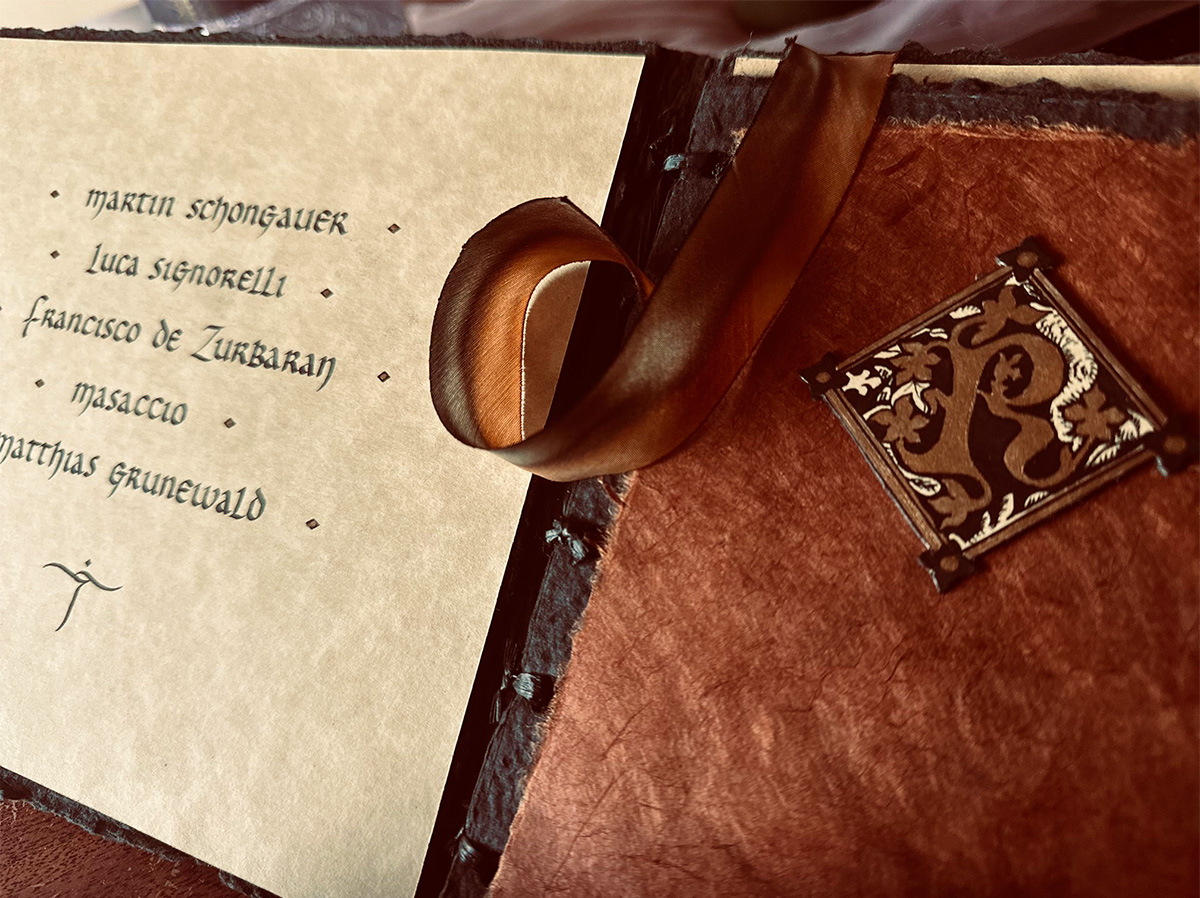 martin schongauer
luca signorelli
francisco de Zurbaran
masaccio
matthias grunewald